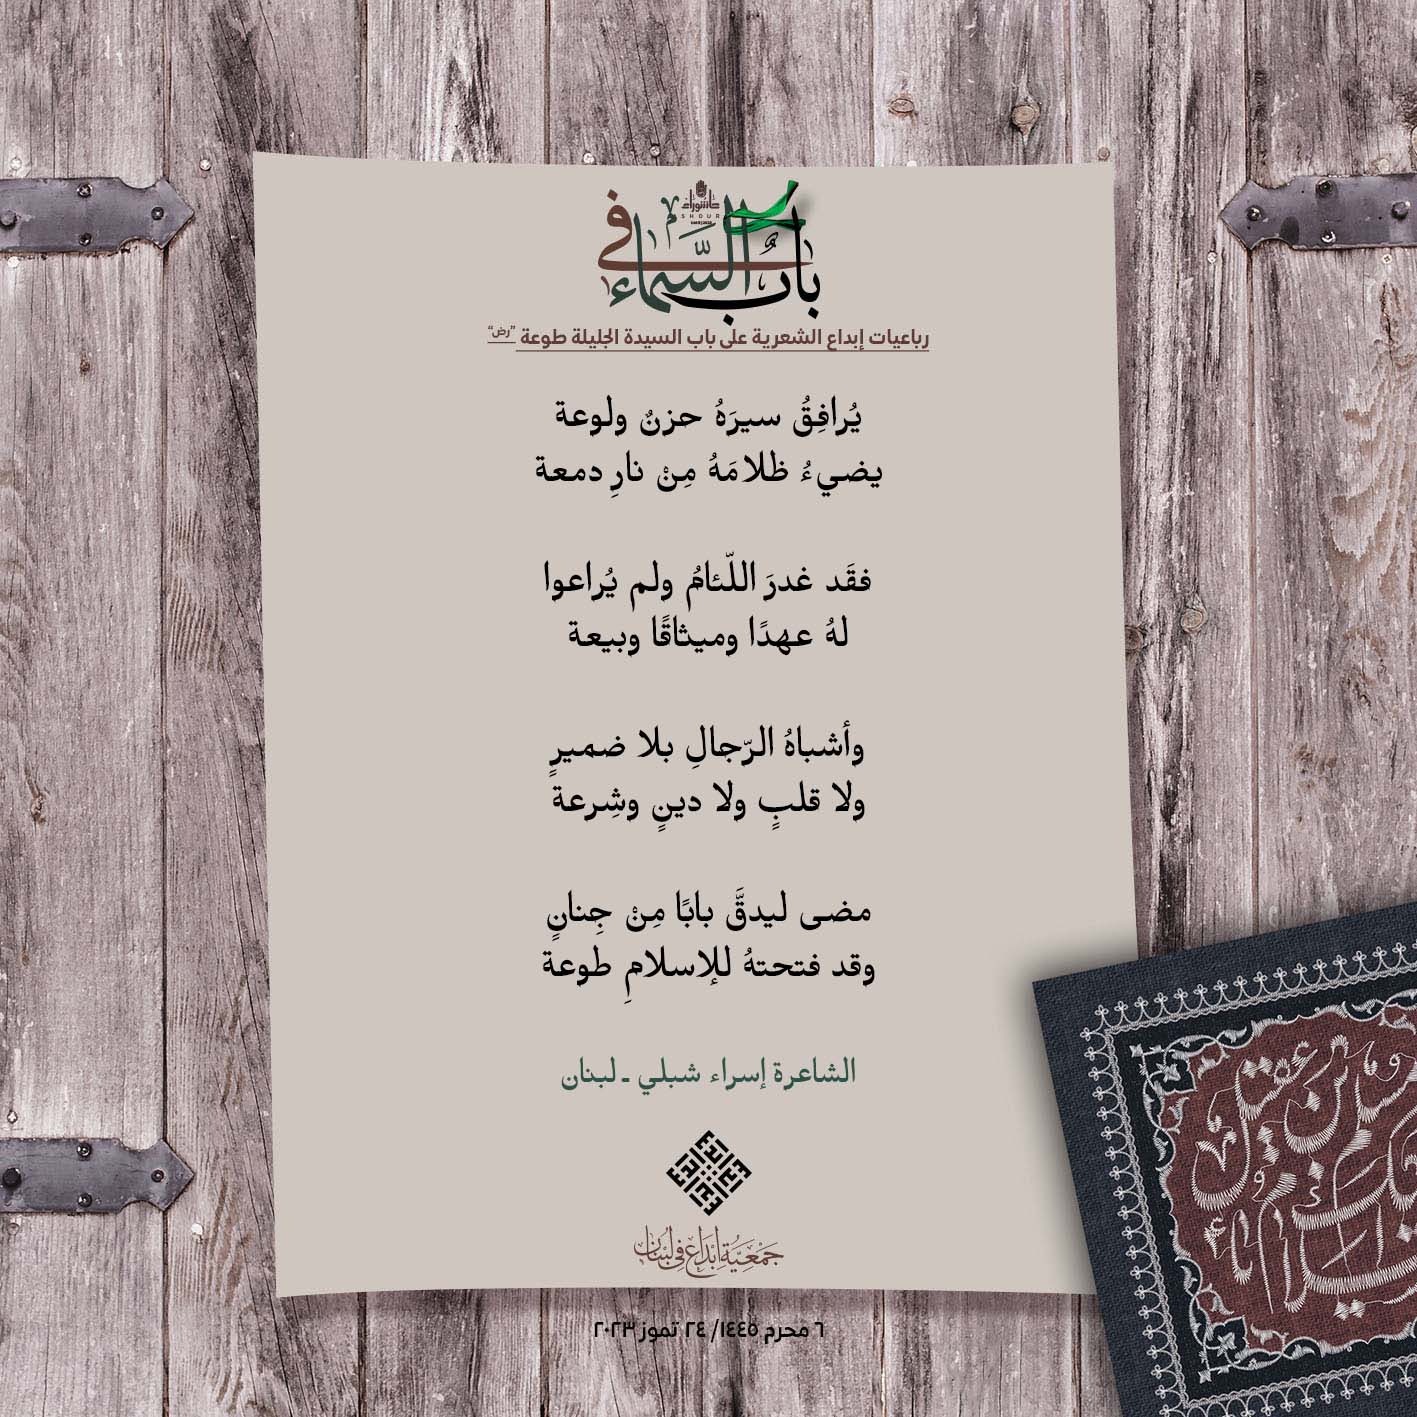 في باب السماء
عاشوراء
رباعيات إبداع الشعرية على باب السيدة الجليلة طوعة "رض"
يُرافِقُ سيرَهُ حزنٌ ولوعة
يضيءُ ظلامَهُ مِنْ نارِ دمعة
فقَد غدرَ اللّئامُ ولم يُراعوا
لهُ عهدًا وميثاقًا وبيعة
وأشباهُ الرّجالِ بلا ضميرٍ
ولا قلبٍ ولا دينٍ وشِرعة
مضى ليدقَّ بابًا مِنْ جِنانٍ
وقد فتحتهُ للإسلامِ طوعة
الشاعرة إسراء شبلي ـ لبنان
جمعية إبداع في لبنان
٦ محرم ١٤٤٥/ ٢٤ تموز ٢٠٢٣